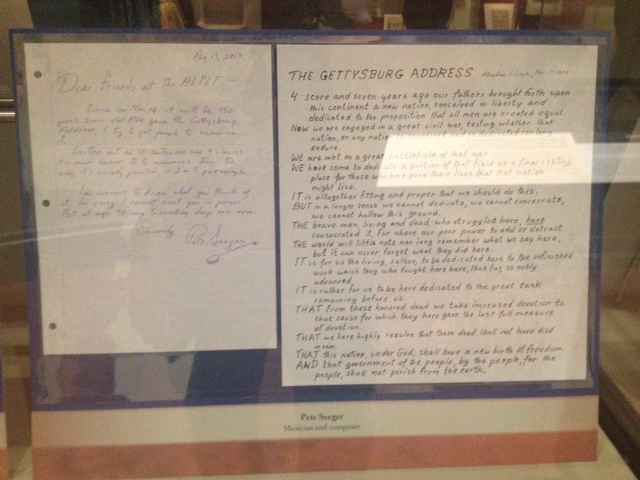 Aug 13, 2013
Dear friends at the ALPLF —
Since on Nov. 19 it will be 150
years since old Abe gave the Gettysburg
Address, I try to get people to memorize
it.
Written out as sentences and
it's much easier to memorize than the
way it's usually printed, in 2 or 3 paragraphs.
I am curious to know what you think of
it. I'm sorry I cannot visit you in person
But at age 94 my traveling days are over.
Sincerely, Pete Seeger
THE GETTYSBURG ADDRESS Abraham Lincoln, Nov. 19, 1863
4 score and seven years ago our fathers brought forth upon
this continent a new nation, conceived in liberty and
dedicated to the proposition that all men are created equal.
NOW we are engaged in a great civil war, testing whether that
nation, or any nation so conceived and so dedicated can long
endure.
WE are met on a great battlefield of that war.
WE have come to dedicate a portion of that field as a final resting
place for those who here gave their lives that that nation
might live.
IT is altogether fitting and proper that we should do this.
BUT in a larger sense we cannot dedicate, we cannot consecrate,
we cannot hallow this ground.
THE brave men, living and dead who struggled here, have
consecrated it, far above our poor power to add or detract.
THE world will little note nor long remember what we say here,
but it can never forget what they did here.
IT is for us the living, rather, to be dedicated here to the unfinished
work which they who fought here have, thus far, so nobly
advanced.
IT is rather for us to be here dedicated to the great task
remaining before us.
THAT from these honored dead we take increased devotion to
that cause for which they here gave the last full measure
of devotion.
THAT we here highly resolve that these dead shall not have died
in vain.
THAT this nation, under God, shall have a new birth of freedom.
AND that government of the people, by the people, for the
people, shall not perish from the earth.
Pete Seeger
Musician and composer